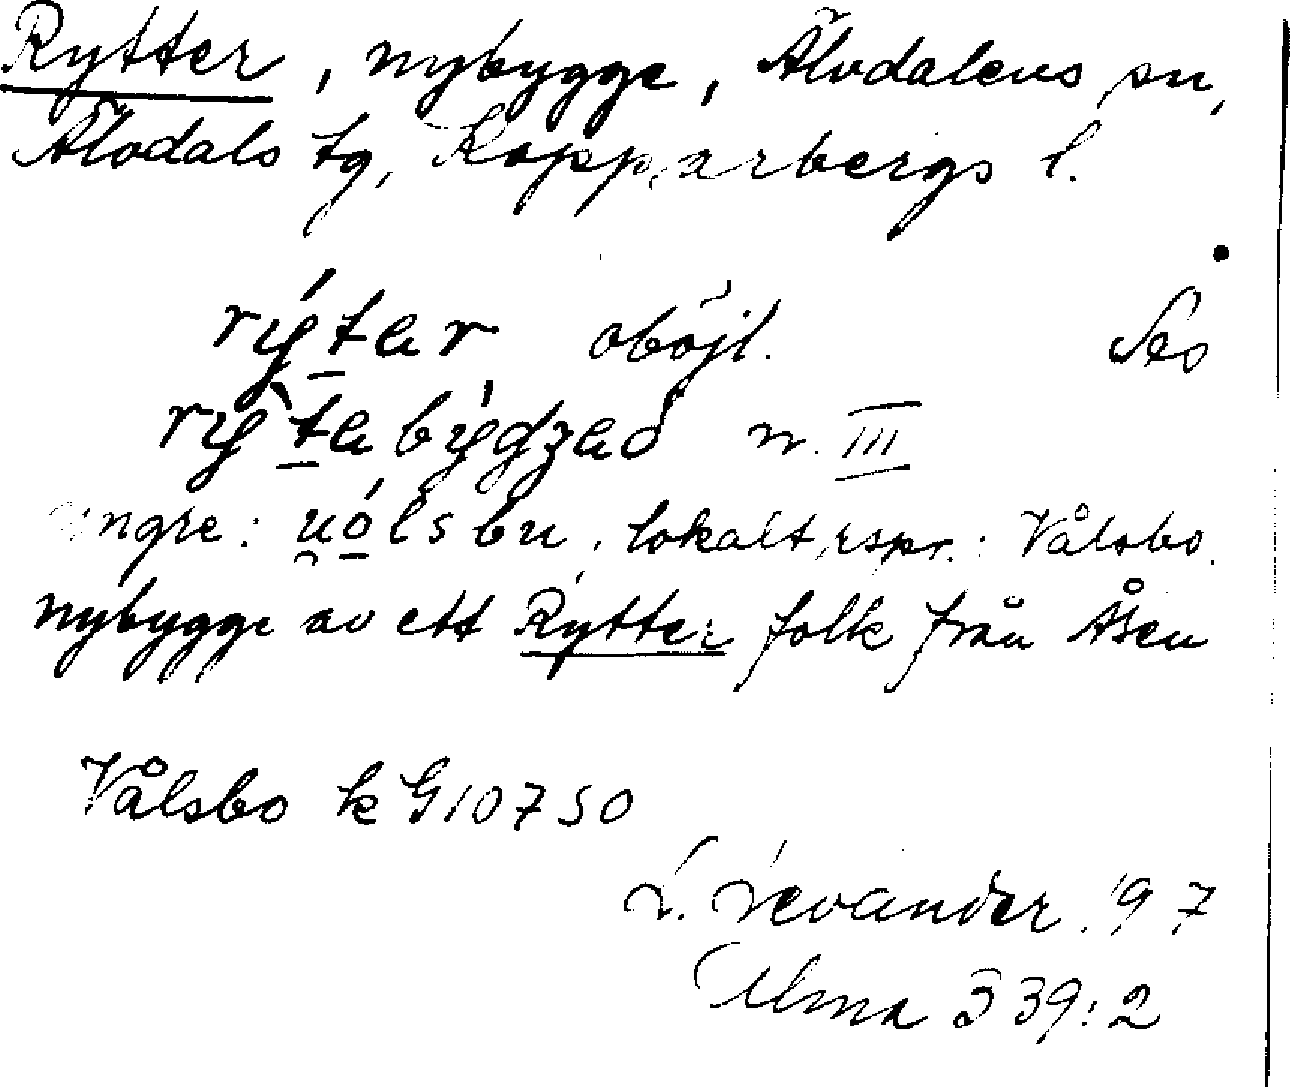 Rytter, nybygge, Älvdalens sn,
Älvdals tg, Kopparbergs l.
rýtar oböjl. Åsö
rỳtabýgʒað n. III
yngre: u̯ólsbu, lokalt rspr.: Vålsbo.
nybygge av ett Rytter folk från Åsen
Vålsbo k G10750
L. Levander. '97
Ulma 339:2